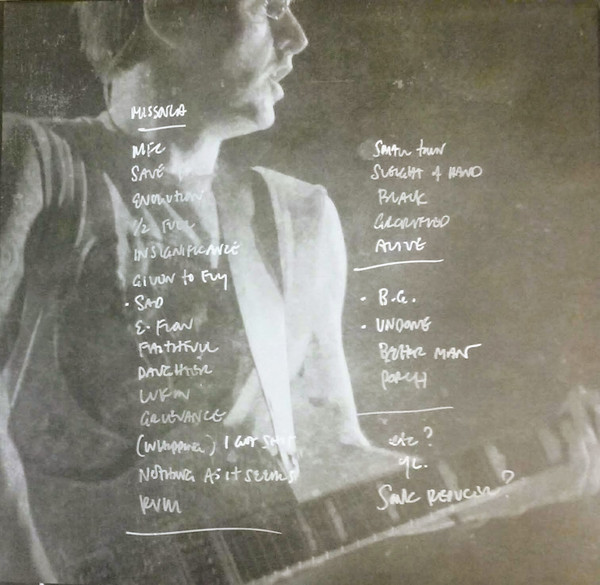 MISSOULA
MFC
SAVE
EVOLUTION
1/2 FULL
INSIGNIFICANCE
GIVEN to FLY
· SAD
E. FLOW
FAITHFULL
DAUGHTER
LUKIN
GRIEVANCE
(WHIPPING) I GOT SHIT
NOTHING AS it SEEMS
RVM
SMALL town
SLEIGHT of HAND
BLACK
GROUNDED
ALIVE
· B.G.
· UNDONE
BETTER MAN
PORCH
etc?
YL.
Sonic REDUCER?